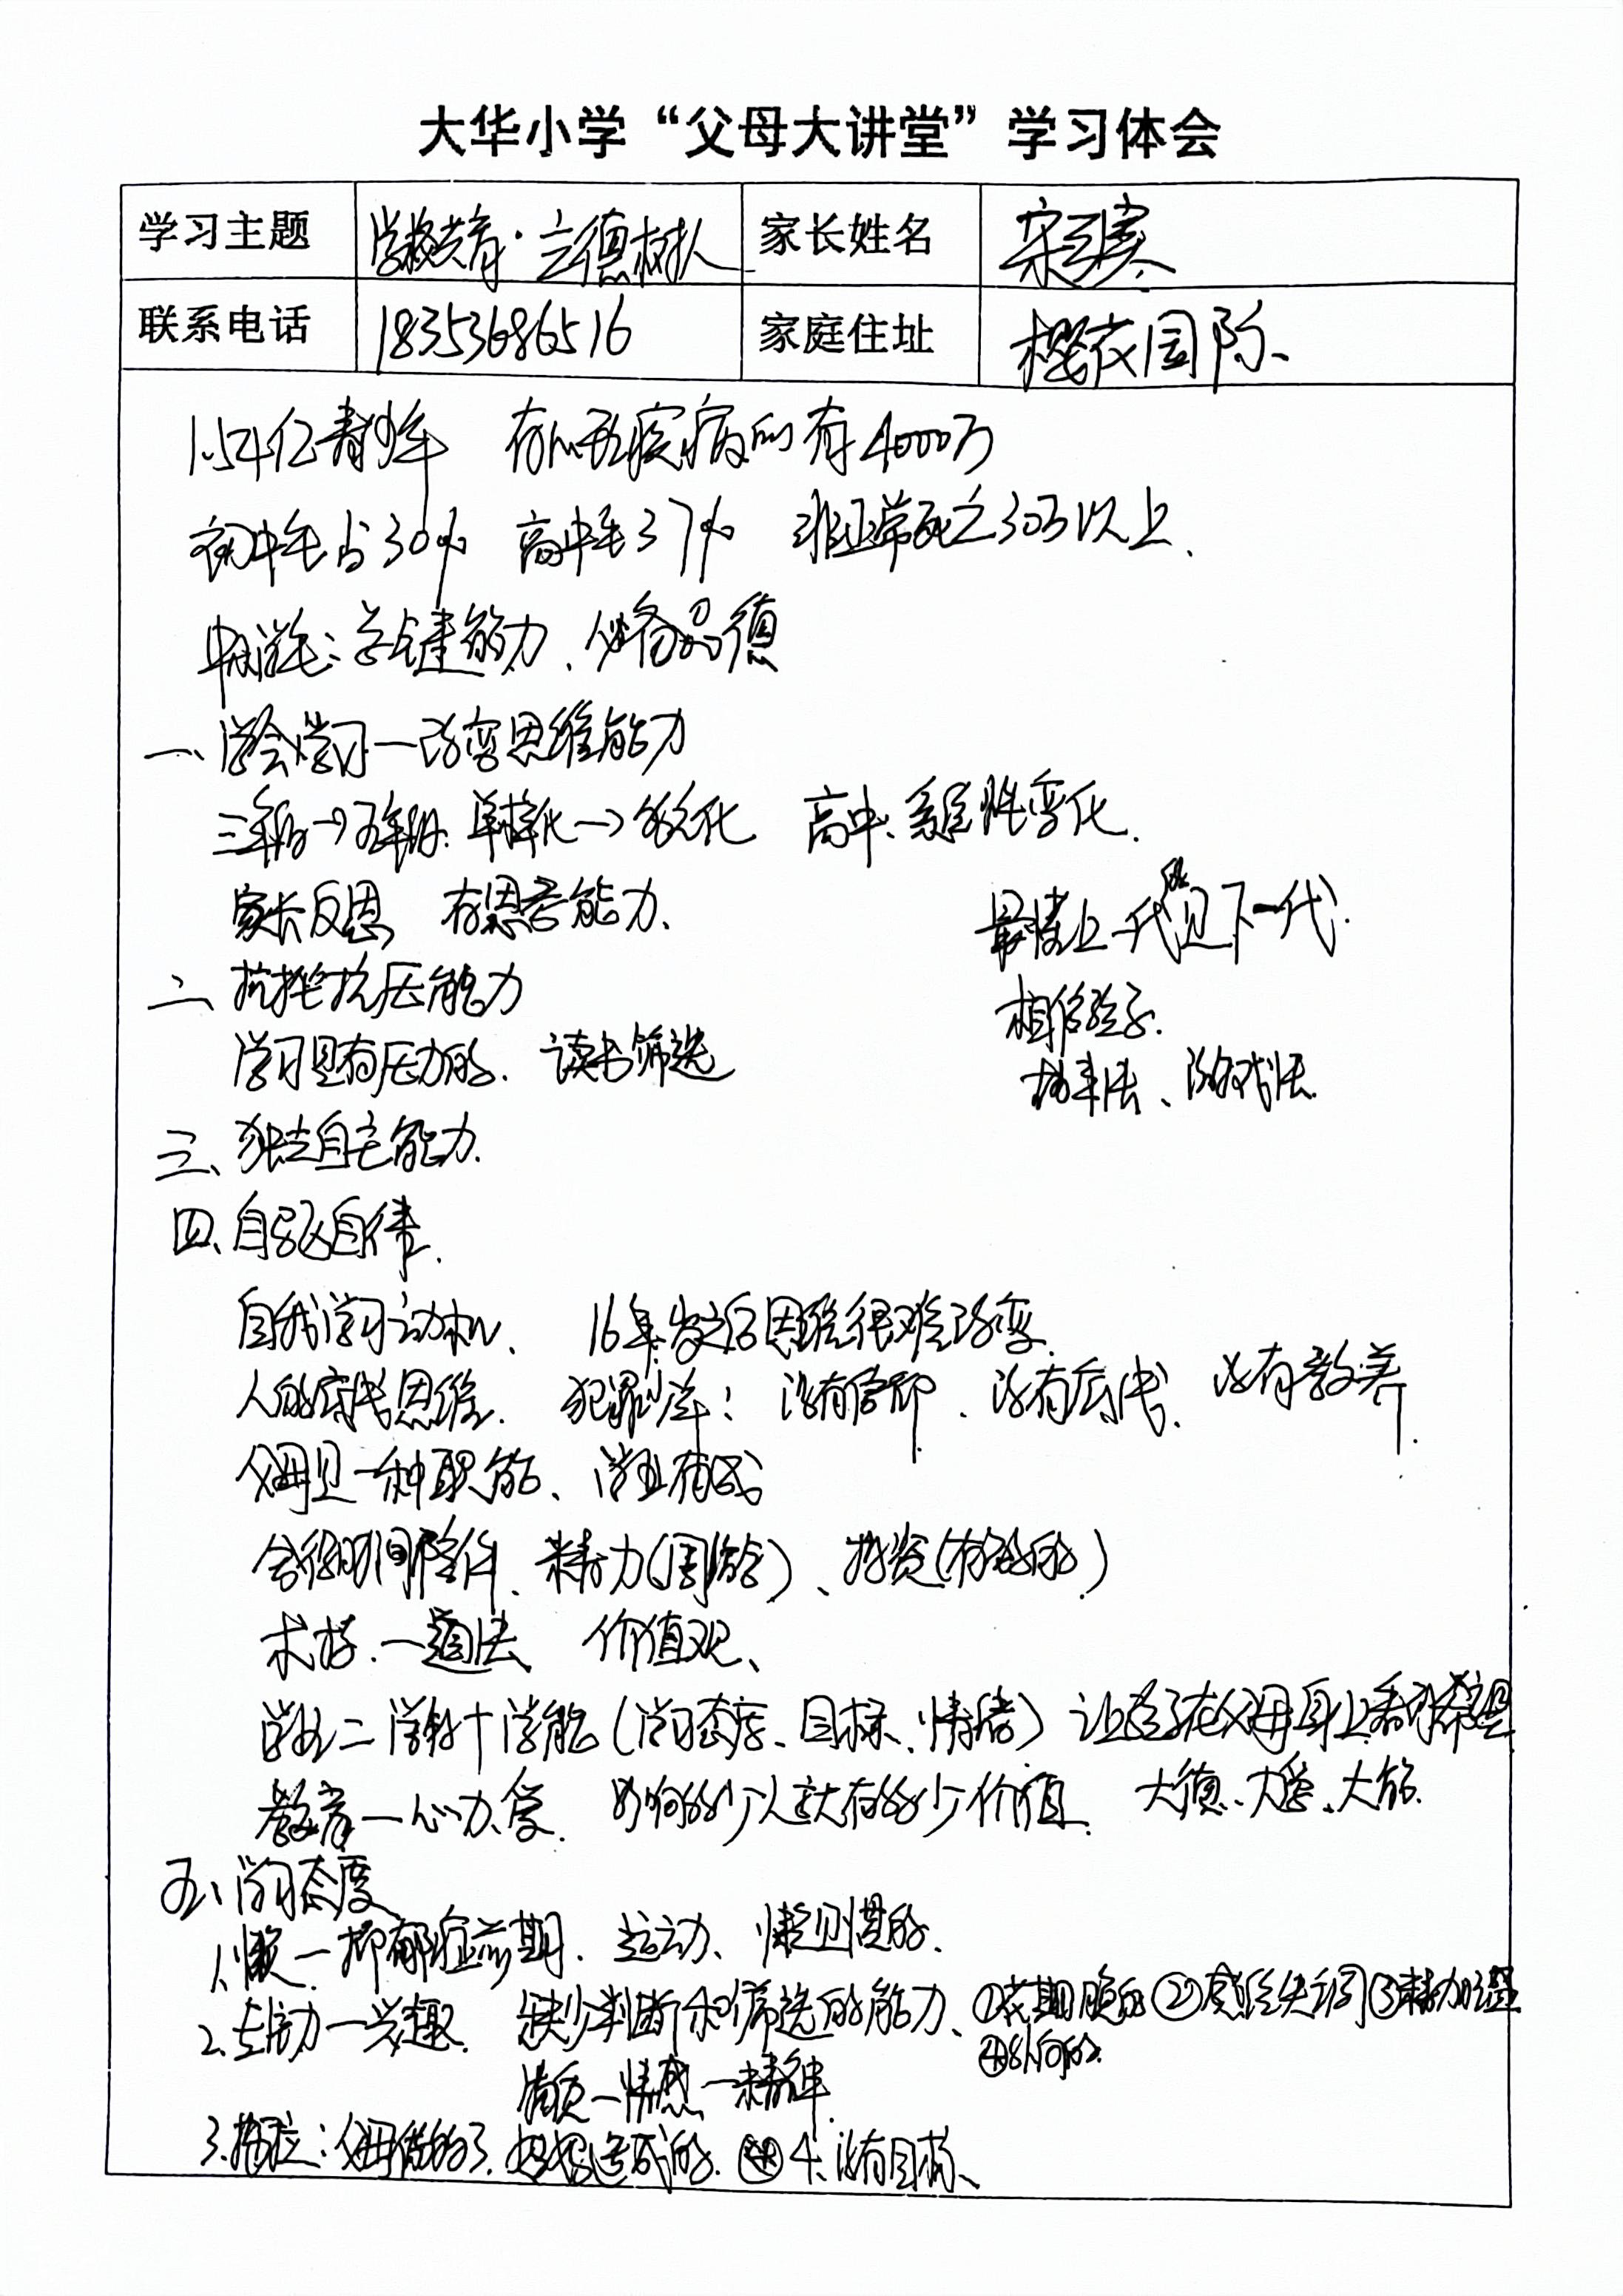 大华小学“父母大讲堂”学习体会
学习主题 学校教育·立德树人 家长姓名 宋
联系电话 18353686516 家庭住址 樱花园际
1.54亿青少年 有心理疾病的有4000万
初中生占30% 高中生37% 非正常死亡30万以上
关键能力、必备品德
一、学会学习—改变思维能力
三年级→五年级 单核化→多元化 高中、系统性变化
家长反思 有思考能力、 最懂上一代 见下一代.
二、抗挫抗压能力 相信孩子.
学习是有压力的、 读书筛选 游戏法
三、独立自主能力
四、自驱自律
自我学习动机、 16年岁之后思维很难改变
人的底线思维 犯罪少年: 没有信仰、没有底线、没有教养
父母是一种职能、学业有成
舍得时间陪伴、精力(周末)、投资
价值观、
学业=学科+学能(学习态度、目标、情绪) 让孩子在父母身上看到希望
教育—心力、爱 影响多少人就有多少价值 大德、大爱、大能
五、学习态度
1.懒—抑郁症前期 运动、懒是惯的.
2.主动力—兴趣 缺少判断和筛选的能力、①花期晚的 ②感统失调 ③精力旺盛
④外向的
情感—精神
3.拖拉:父母做的多. 妈妈造成的. 4、没有目标、